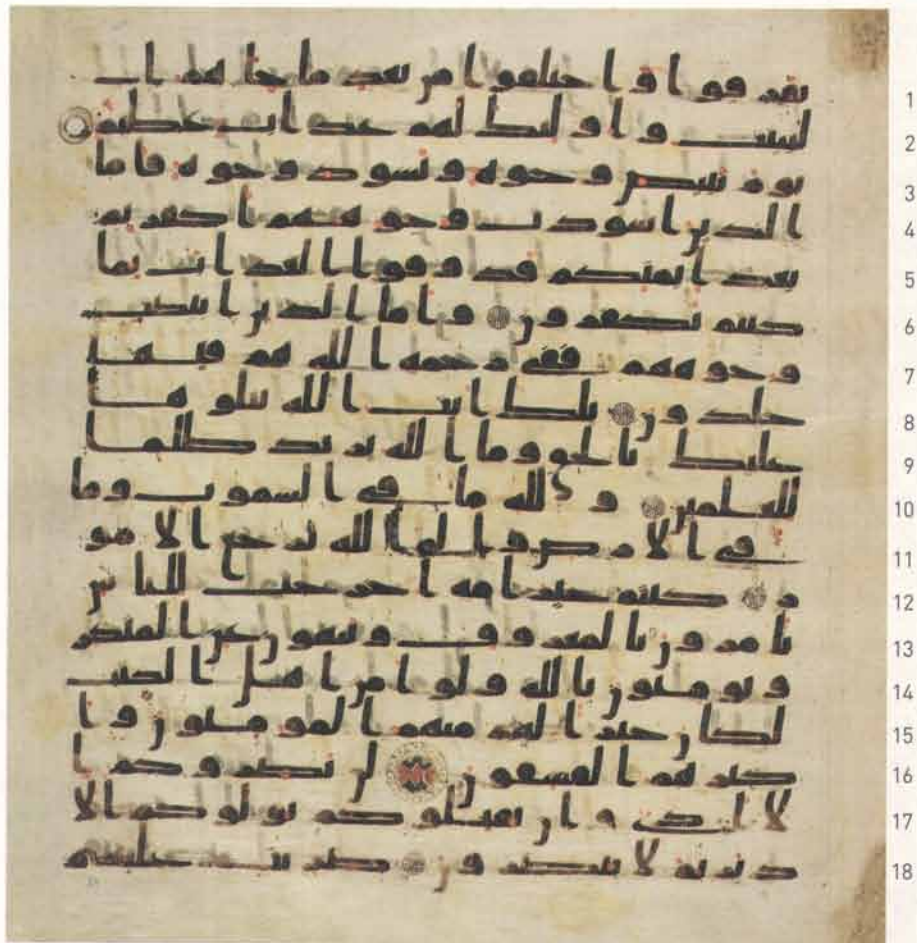 1 تفرقوا واختلفوا من بعد ما جاهم ا
2 لبينت واوليك لهم عذاب عظيم
3 يوم تبيض وجوه وتسود وجوه فاما
4 الذين اسودت وجوههم اكفرتم
5 بعد ايمنكم فذوقوا العذاب بما
6 كنتم تكفرون واما الذين ابيضت
7 وجوههم ففي رحمة الله هم فيها
8 خلدون تلك ايت الله نتلوها
9 عليك بالحق وما الله يريد ظلما
10 للعلمين ولله ما في السموت وما
11 في الارض والى الله ترجع الامو
12 ر كنتم خير امة اخرجت للناس
13 تامرون بالمعروف وتنهون عن المنكر
14 وتومنون بالله ولو امن اهل الكتب
15 لكان خيرا لهم منهم المومنون وا
16 كثرهم الفسقون لن يضروكم ا
17 لا اذى وان يقتلوكم يولوكم الا
18 دبر ثم لا ينصرون ضربت عليهم